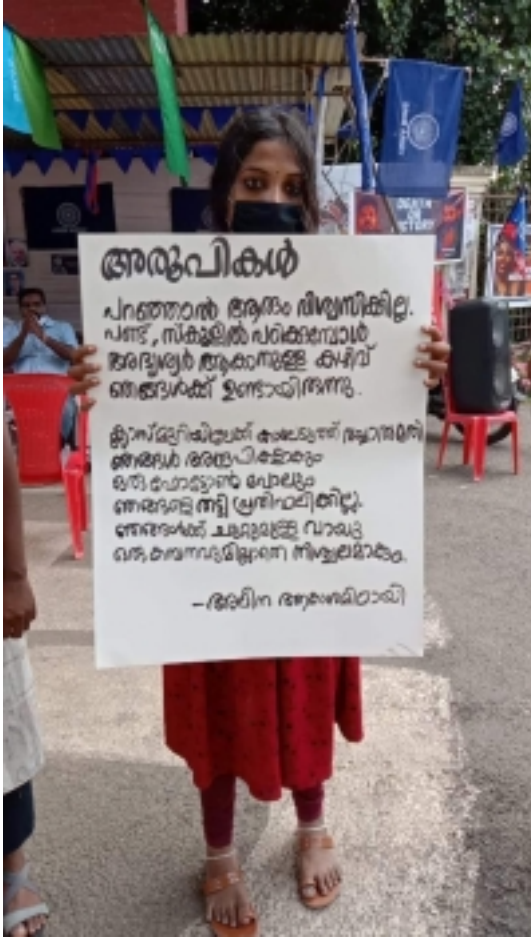 അരൂപികൾ
പറഞ്ഞാൽ ആരും വിശ്വസിക്കില്ല.
പണ്ട്, സ്കൂളിൽ പഠിക്കുമ്പോൾ
അദൃശ്യർ ആകാനുള്ള കഴിവ്
ഞങ്ങൾക്ക് ഉണ്ടായിരുന്നു.
ക്ലാസ് മുറിയിലേക്ക്
ഞങ്ങൾ അരൂപികളാകും
ഒരു ഫോട്ടോൺ പോലും
ഞങ്ങളെ തട്ടി പ്രതിഫലിക്കില്ല.
ഞങ്ങൾക്ക് ചുറ്റുമുള്ള വായു
ഒരു കമ്പനവുമില്ലാതെ നിശ്ചലമാകും.
-അലീന ആകാശമിഠായി
DEATH
OR
VICTORY